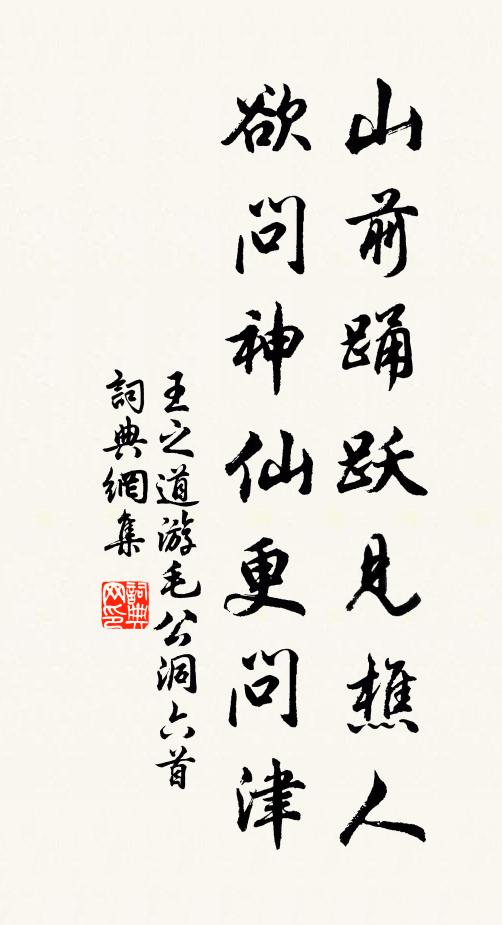 山前踊跃見樵人
欲問神仙更問津
王之道游毛公洞六首
詞典網集
詞典网印